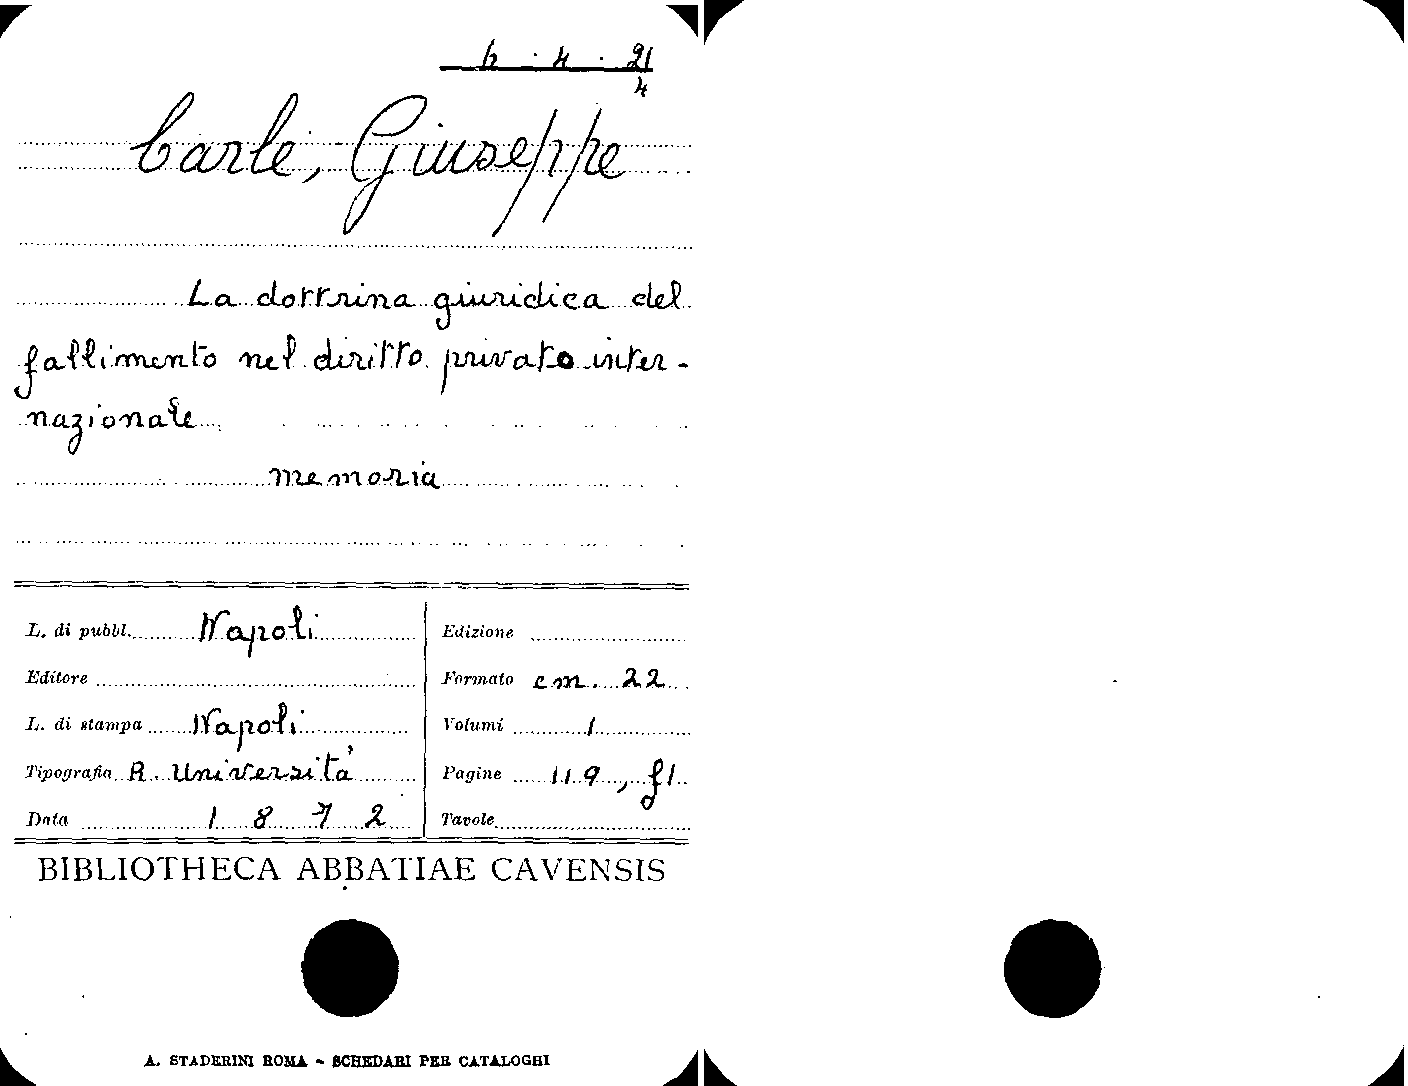 b . 4 . 21
4
Carle, Giuseppe
La dottrina giuridica del
fallimento nel diritto privato inter-
nazionale
memoria
L. di pubbl. Napoli
Editore
L. di stampa Napoli
Tipografia R. Università
Data 1872
Edizione
Formato cm. 22
Volumi 1
Pagine 119, f1
Tavole
BIBLIOTHECA ABBATIAE CAVENSIS
A. STADERINI ROMA - SCHEDARI PER CATALOGHI